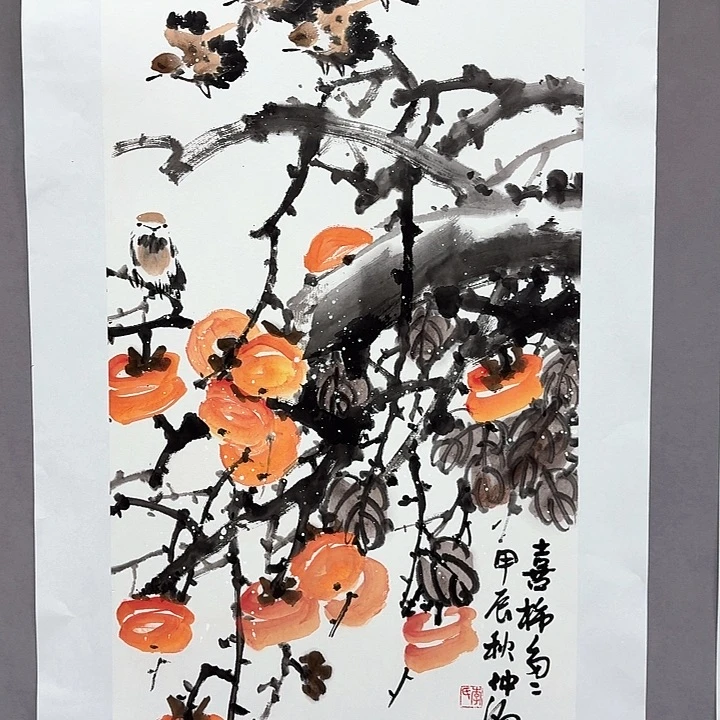 喜柿多多
甲辰秋坤